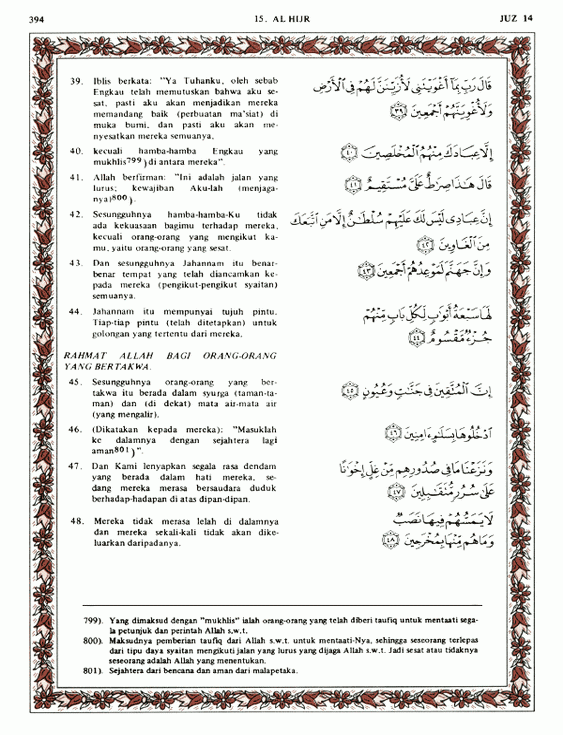 394
15. AL HIJR
JUZ 14
39. Iblis berkata: "Ya Tuhanku, oleh sebab
Engkau telah memutuskan bahwa aku se-
sat, pasti aku akan menjadikan mereka
memandang baik (perbuatan ma'siat) di
muka bumi, dan pasti aku akan me-
nyesatkan mereka semuanya,
قَالَ رَبِّ بِمَآ أَغْوَيْتَنِى لَأُزَيِّنَنَّ لَهُمْ فِى ٱلْأَرْضِ
وَلَأُغْوِيَنَّهُمْ أَجْمَعِينَ ٣٩
40. kecuali hamba-hamba Engkau yang
mukhlis799) di antara mereka".
إِلَّا عِبَادَكَ مِنْهُمُ ٱلْمُخْلَصِينَ ٤٠
41. Allah berfirman: "Ini adalah jalan yang
lurus; kewajiban Aku-lah (menjaga-
nya)800).
قَالَ هَٰذَا صِرَٰطٌ عَلَىَّ مُسْتَقِيمٌ ٤١
42. Sesungguhnya hamba-hamba-Ku tidak
ada kekuasaan bagimu terhadap mereka,
kecuali orang-orang yang mengikut ka-
mu, yaitu orang-orang yang sesat.
إِنَّ عِبَادِى لَيْسَ لَكَ عَلَيْهِمْ سُلْطَٰنٌ إِلَّا مَنِ ٱتَّبَعَكَ
مِنَ ٱلْغَاوِينَ ٤٢
43. Dan sesungguhnya Jahannam itu benar-
benar tempat yang telah diancamkan ke-
pada mereka (pengikut-pengikut syaitan)
semuanya.
وَإِنَّ جَهَنَّمَ لَمَوْعِدُهُمْ أَجْمَعِينَ ٤٣
44. Jahannam itu mempunyai tujuh pintu.
Tiap-tiap pintu (telah ditetapkan) untuk
golongan yang tertentu dari mereka.
لَهَا سَبْعَةُ أَبْوَٰبٍ لِّكُلِّ بَابٍ مِّنْهُمْ
جُزْءٌ مَّقْسُومٌ ٤٤
RAHMAT ALLAH BAGI ORANG-ORANG
YANG BERTAKWA.
45. Sesungguhnya orang-orang yang ber-
takwa itu berada dalam syurga (taman-ta-
man) dan (di dekat) mata air-mata air
(yang mengalir).
إِنَّ ٱلْمُتَّقِينَ فِى جَنَّٰتٍ وَعُيُونٍ ٤٥
46. (Dikatakan kepada mereka): "Masuklah
ke dalamnya dengan sejahtera lagi
aman801)".
ٱدْخُلُوهَا بِسَلَٰمٍ ءَامِنِينَ ٤٦
47. Dan Kami lenyapkan segala rasa dendam
yang berada dalam hati mereka, se-
dang mereka merasa bersaudara duduk
berhadap-hadapan di atas dipan-dipan.
وَنَزَعْنَا مَا فِى صُدُورِهِم مِّنْ غِلٍّ إِخْوَٰنًا
عَلَىٰ سُرُرٍ مُّتَقَٰبِلِينَ ٤٧
48. Mereka tidak merasa lelah di dalamnya
dan mereka sekali-kali tidak akan dike-
luarkan daripadanya.
لَا يَمَسُّهُمْ فِيهَا نَصَبٌ
وَمَا هُم مِّنْهَا بِمُخْرَجِينَ ٤٨
799). Yang dimaksud dengan "mukhlis" ialah orang-orang yang telah diberi taufiq untuk mentaati sega-
la petunjuk dan perintah Allah s.w.t.
800). Maksudnya pemberian taufiq dari Allah s.w.t. untuk mentaati-Nya, sehingga seseorang terlepas
dari tipu daya syaitan mengikuti jalan yang lurus yang dijaga Allah s.w.t. Jadi sesat atau tidaknya
seseorang adalah Allah yang menentukan.
801). Sejahtera dari bencana dan aman dari malapetaka.